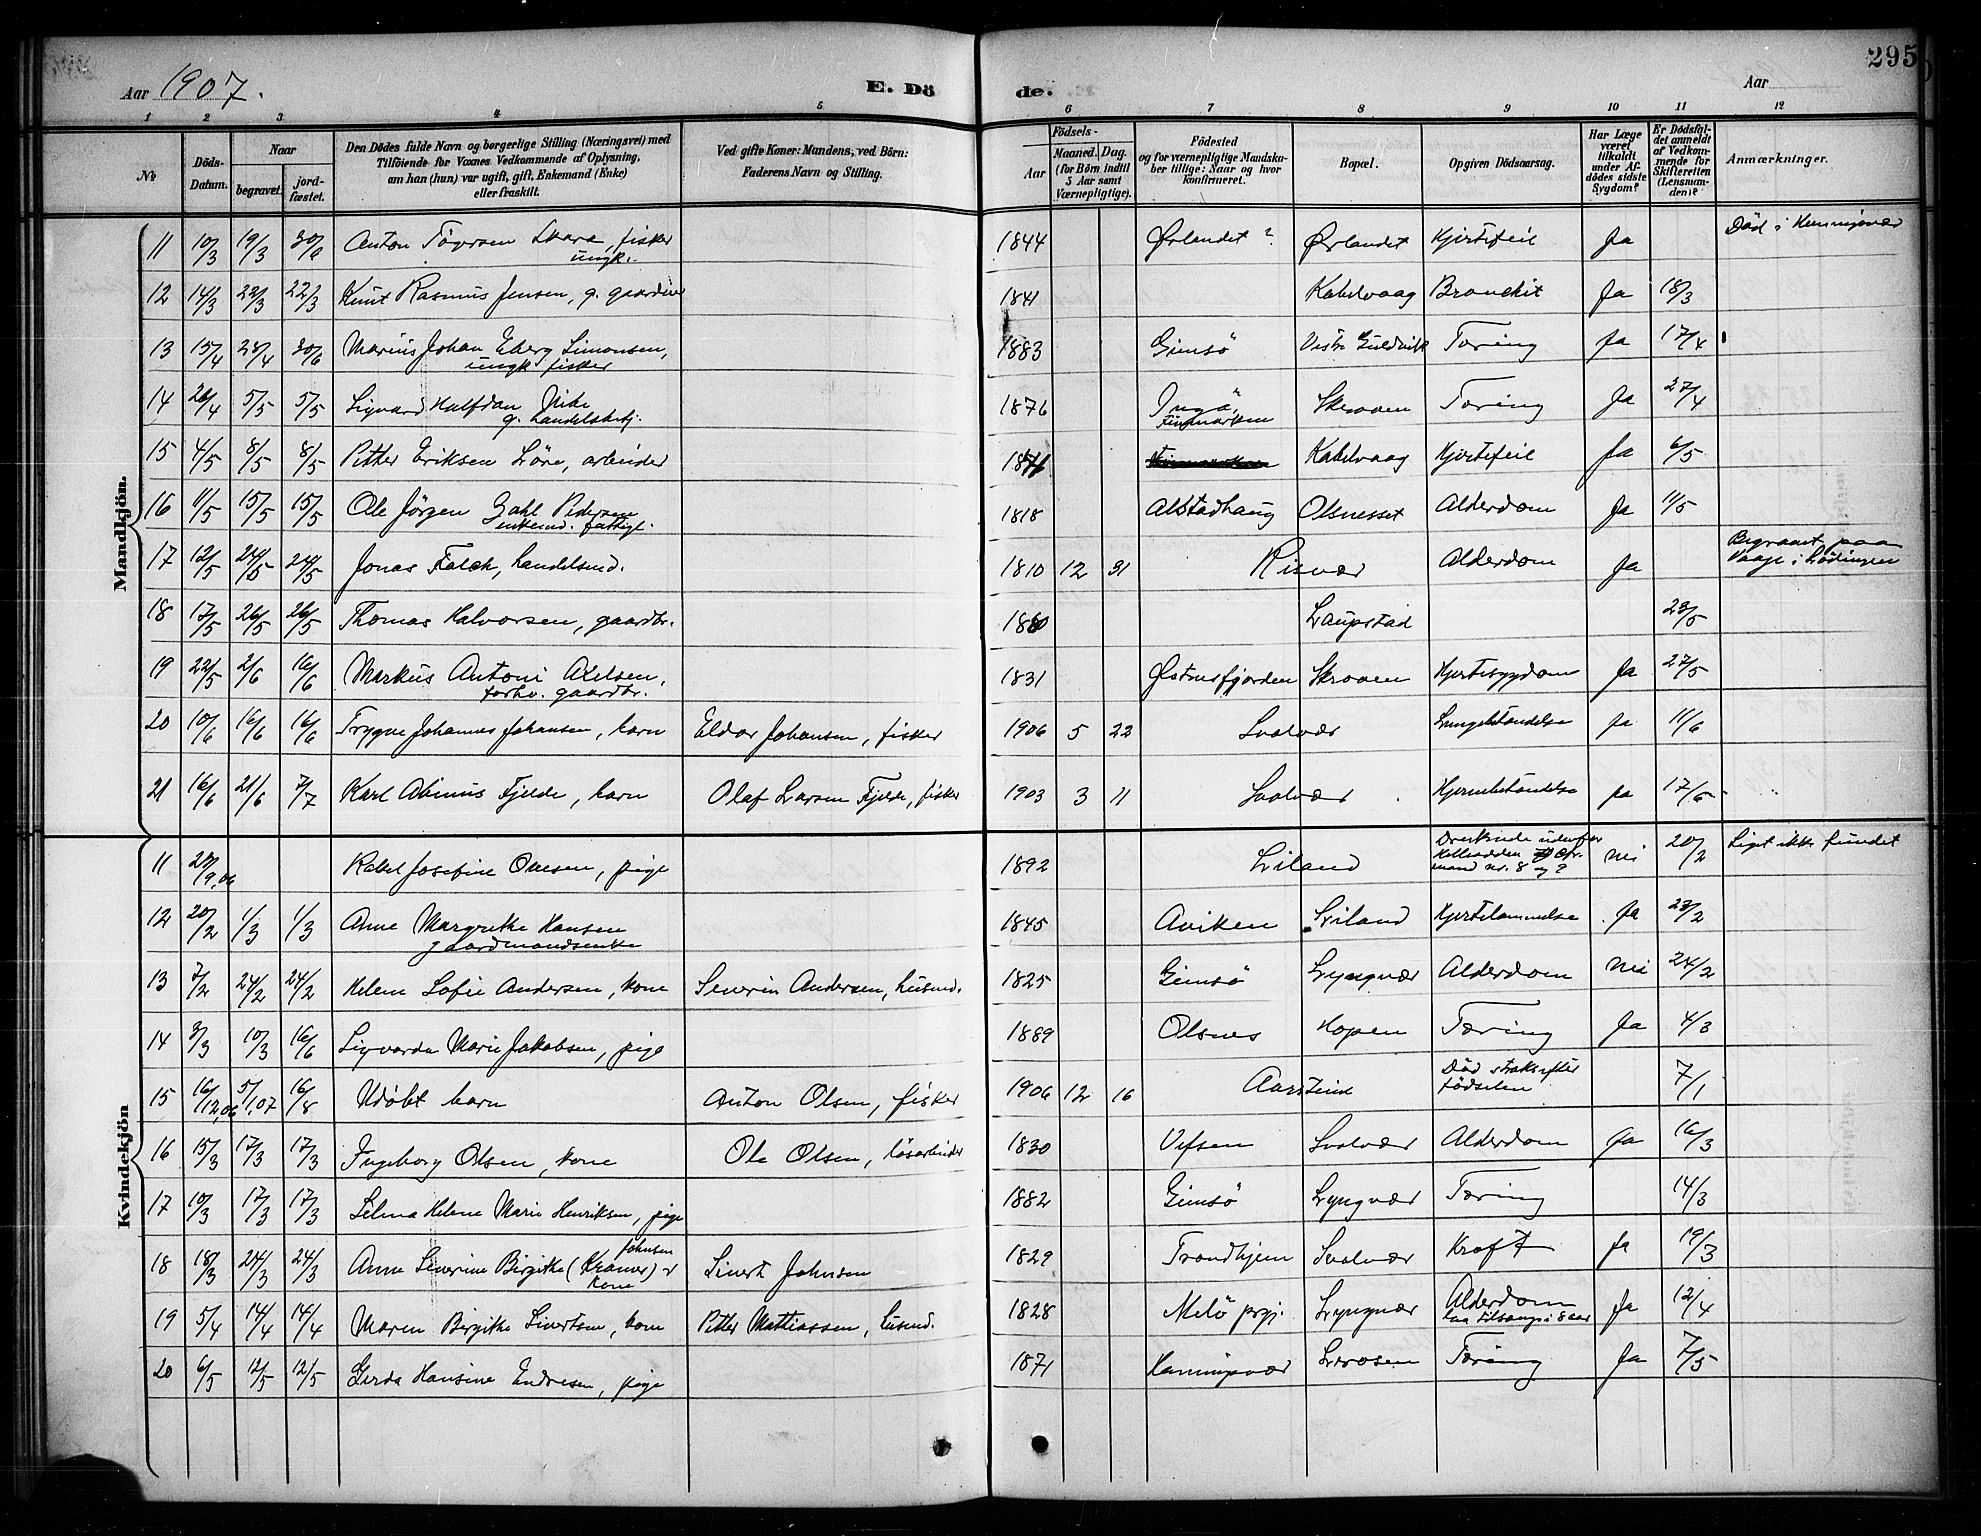 295
Aar 1907.
E. Döde.
Aar
1 2 3 4 5 6 7 8 9 10 11 12
No
Döds-Datum.
Naar
begravet. jordfæstet.
Den Dödes fulde Navn og borgerlige Stilling (Næringsvei) med Tilföiende for Voxnes Vedkommende af Oplysning, om han (hun) var ugift, gift, Enkemand (Enke) eller fraskilt.
Ved gifte Koner: Mandens, ved Börn: Faderens Navn og Stilling.
Födsels-
Aar Maaned. Dag. (for Börn indtil 5 Aar samt Værnepligtige).
Födested og for værnepligtige Mandskaber tillige: Naar og hvor konfirmeret.
Bopæl.
Opgiven Dödsaarsag.
Har Læge været tilkaldt under Afdödes sidste Sygdom?
Er Dödsfaldet anmeldt af Vedkommende for Skifteretten (Lensmanden)?
Anmærkninger.
Mandkjön.
11 10/3 19/3 30/6 Anton Skara, fisker ungk. 1844 Ørlandet? Ørlandet Hjertefeil Ja Död i Henningsvær
12 14/3 22/3 22/3 Knut Rasmus Jensen, g. 1841 Kabelvaag Bronchit Ja 18/3
13 15/4 28/4 30/6 Marius Johan Eberg Simonsen, ungk fisker 1883 Gimsö Vestre Tæring Ja 17/4
14 26/4 5/5 5/5 Sigvard Halfdan g. handelsbetj. 1876 Ingö, Finmarken Skroven Tæring Ja 27/4
15 4/5 8/5 8/5 Petter Eriksen arbeider Kabelvaag Hjertefeil Ja 6/5
16 11/5 15/5 15/5 Ole Jörgen Dahl Pedersen enkemd. fattigl. 1818 Alstadhaug Olsnesset Alderdom Ja 11/5
17 12/5 24/5 24/5 Jonas Falch, handelsmd. 1810 12 31 Risvær Alderdom Ja Begravet paa Vaage i Lödingen
18 17/5 26/5 26/5 Thomas Halvorsen, gaardbr. Laupstad 23/5
19 22/5 2/6 16/6 Markus Antoni Axelsen, forhv. gaardbr. 1831 Østnesfjorden Skroven Hjertesygdom Ja 27/5
20 10/6 16/6 16/6 Trygve Johannes Johansen, barn Eldor Johansen, fisker 1906 5 22 Svolvær Lungebetændelse Ja 11/6
21 16/6 21/6 7/7 Karl Fjelde, barn Olaf Larsen Fjelde, fisker 1903 3 11 Svolvær Hjernebetændelse Ja 17/6
Kvindekjön
11 28/9,06 Rakel Josefine Ovesen, pige 1892 Liland Druknede udenfor nr. 8 og 9 nei 20/2 Liget ikke fundet
12 20/2 1/3 1/3 Anne Margrethe Hansen gaardmandsenke 1845 Aviken Liland Hjertelammelse Ja 23/2
13 7/2 24/2 24/2 Helene Sofie Andersen, kone Severin Andersen, husmd. 1825 Gimsö Lyngvær Alderdom Nei 24/2
14 3/3 10/3 16/6 Sigvarda Marie Jakobsen, pige 1889 Olsnes Hopen Tæring Ja 4/3
15 16/12,06 5/1,07 16/8 Udöbt barn Anton Olsen, fisker 1906 12 16 Aarsteind Död straks efter födselen 7/1
16 15/3 17/3 17/3 Ingeborg Olsen, kone Ole Olsen, lösarbeider 1830 Vefsen Svolvær Alderdom Ja 16/3
17 10/3 17/3 17/3 Selma Helene Marie Henriksen, pige 1882 Gimsö Lyngvær Tæring 14/3
18 18/3 24/3 24/3 Anne Severine Birgitte (Kramer) Johnsen kone Sivert Johnsen 1829 Trondhjem Svolvær Kræft Ja 19/3
19 5/4 14/4 14/4 Maren Birgitte Sivertsen, kone Petter Mattiassen, husmd. 1828 Melö prgj. Lyngvær Alderdom laa tilsengs i 8 aar Ja 12/4
20 6/5 12/5 12/5 Gerda Hansine Endresen, pige 1871 Henningsvær Tæring Ja 7/5